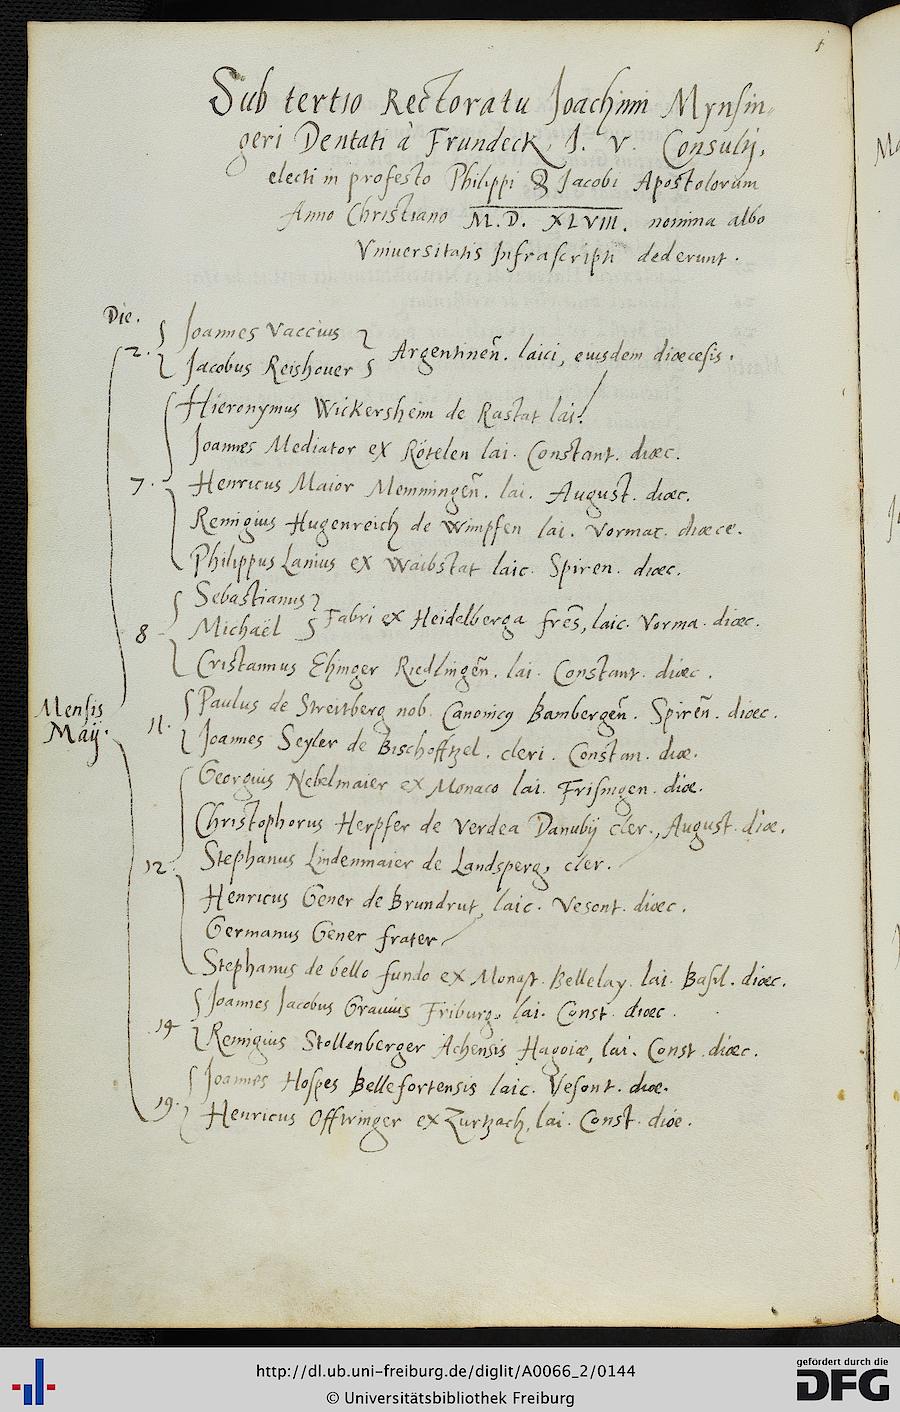 Sub tertio Rectoratu Joachimi Mynsin-
geri Dentati à Frundeck, J. V. Consulti,
electi in profesto Philippi & Jacobi Apostolorum
Anno Christiano M.D. XLVIII. nomina albo
Vniuersitatis Infrascripti dederunt.
Die.
2. Joannes Vaccius
Jacobus Reishouer Argentinen̄. laici, eiusdem diœcesis.
Hieronymus Wickersheim de Rastat lai.
Joannes Mediator ex Rötelen lai. Constant. diœc.
7. Henricus Maior Memmingen̄. lai. August. diœc.
Remigius Hugenreich de Wimpfen lai. Vormac. diœce.
Philippus Lanius ex Waibstat laic. Spiren. diœc.
Sebastianus
8 Michaël Fabri ex Heidelberga fres̄, laic. Vorma. diœc.
Cristannus Ehinger Riedlingen̄. lai. Constant. diœc.
Mensis Maij.
11. Paulus de Streitberg nob. Canonicg Bambergen̄. Spiren̄. diœc.
Joannes Seyler de Bischofftzel. cleri. Constan. diœ.
Georgius Nebelmaier ex Monaco lai. Frisingen. diœ.
Christophorus Herpfer de Verdea Danubij cler., August. diœ.
12. Stephanus Lindenmaier de Landsperg, cler.
Henricus Gener de Brundrut, laic. Vesont. diœc.
Germanus Gener frater
Stephanus de bello fundo ex Monast. Bellelay. lai. Basil. diœc.
Joannes Jacobus Grauius Friburg. lai. Const. diœc.
14 Remigius Stollenberger Achensis Hagoiæ, lai. Const. diœc.
Joannes Hospes Bellefortensis laic. Vesont. diœ.
19. Henricus Offtringer ex Zurtzach, lai. Const. diœ.
http://dl.ub.uni-freiburg.de/diglit/A0066_2/0144
© Universitätsbibliothek Freiburg
gefördert durch die
DFG